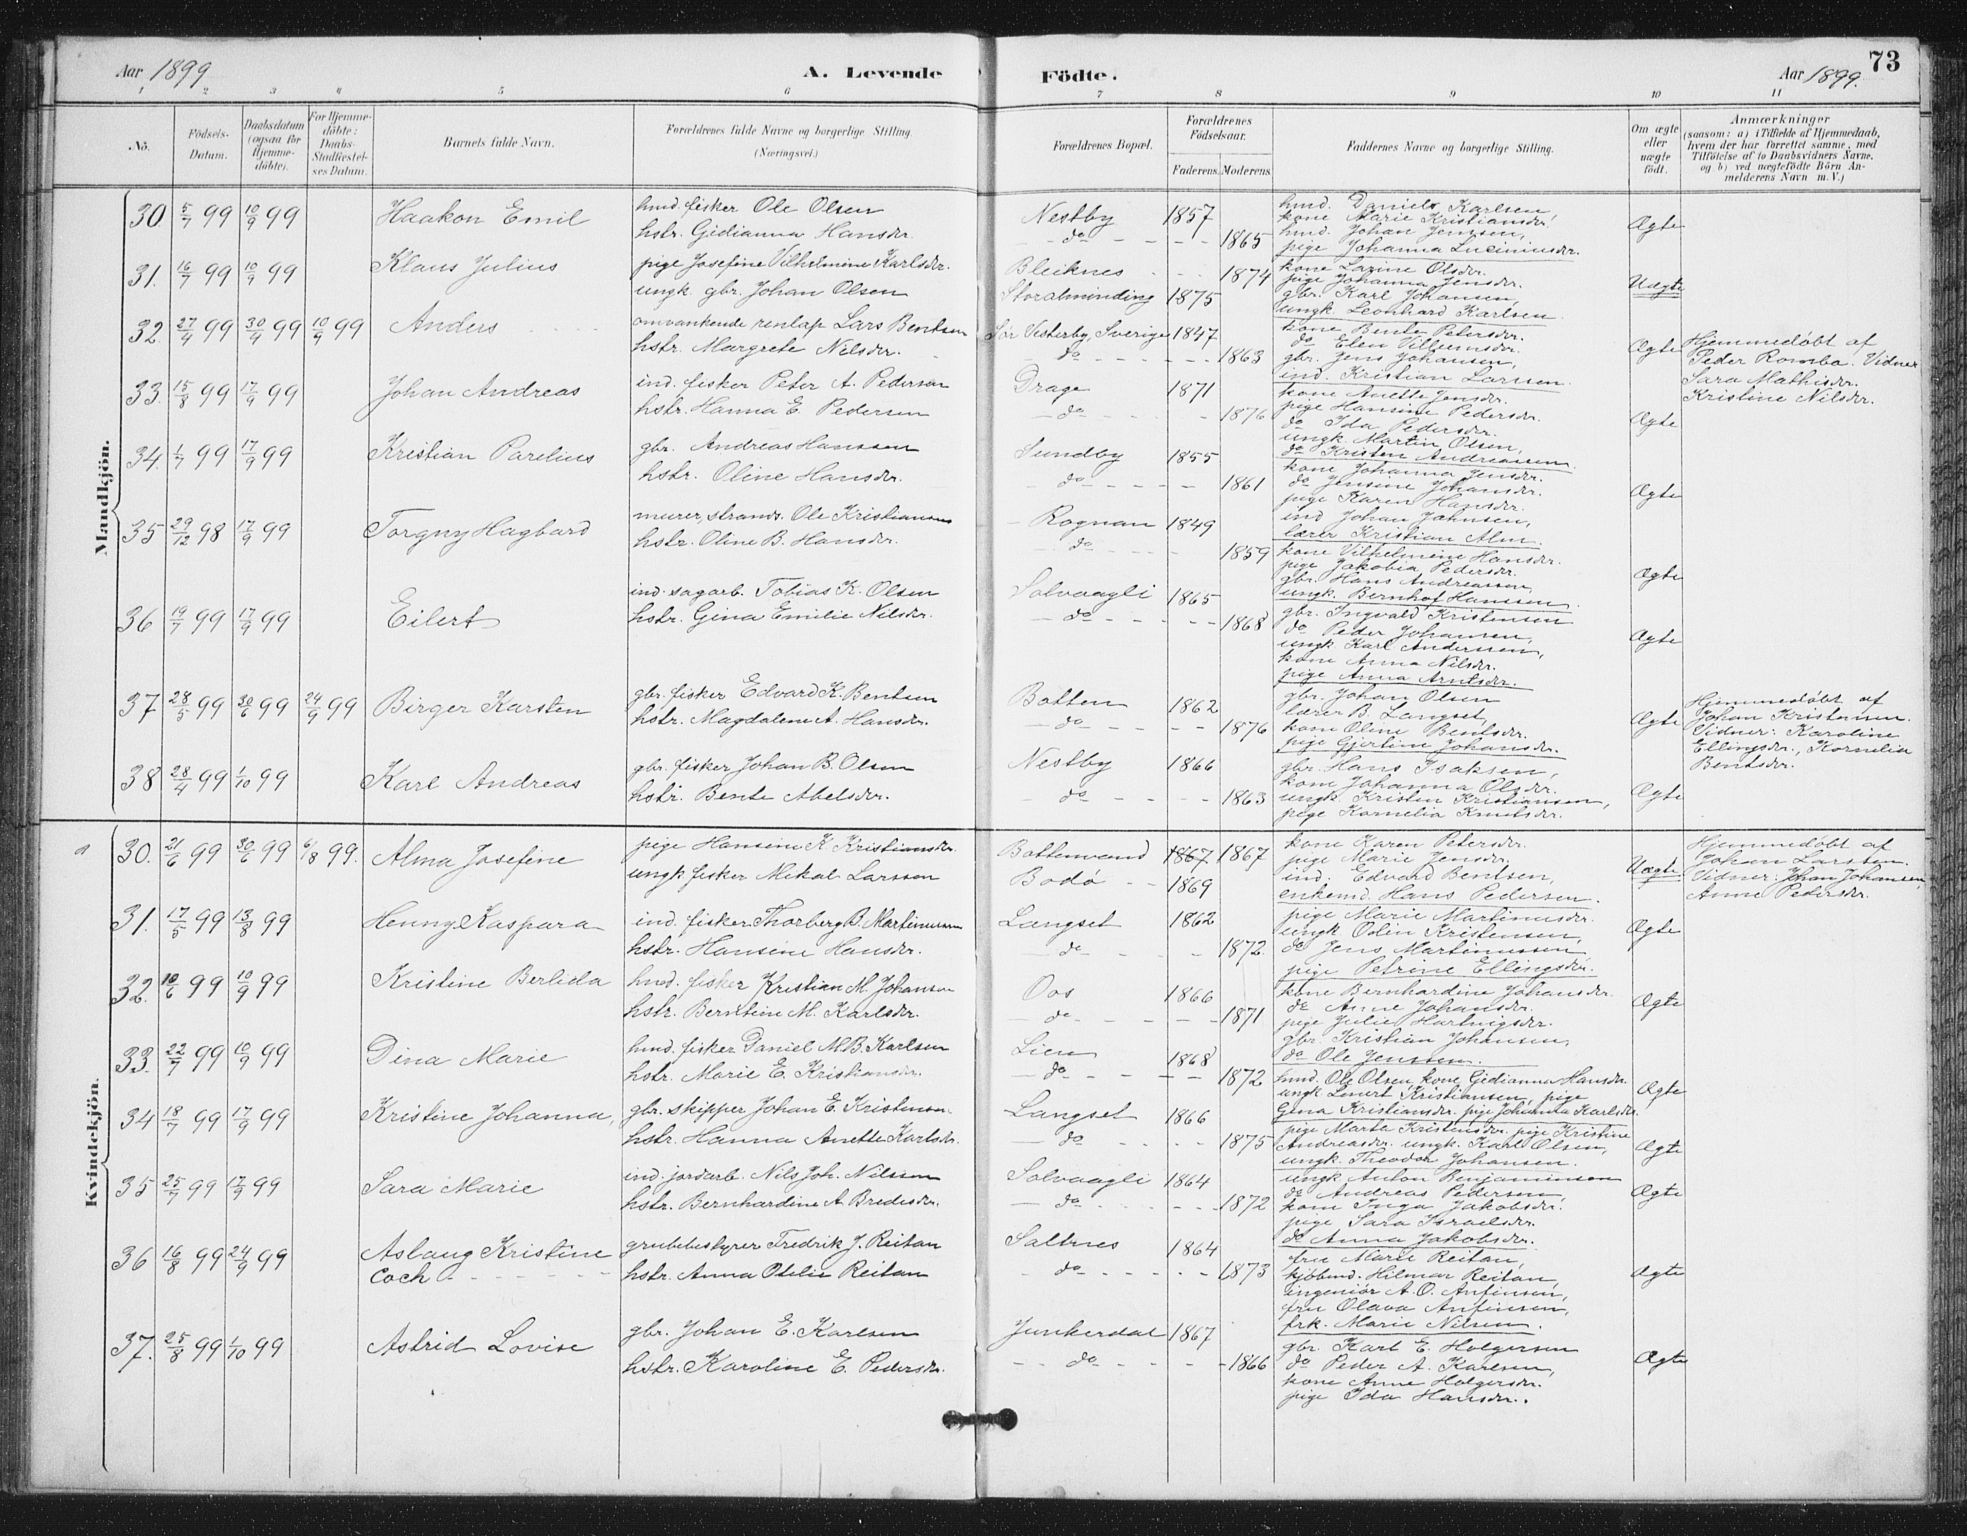 Aar 1899
A. Levende
Födte.
Aar 1899.
73
1 2 3 4 5 6 7 8 9 10 11
No.
Födsels-
Datum.
Daabsdatum
(ogsaa for
Hjemme-
döbte).
For Hjemme-
döbte:
Daabs-
Stadfæstel-
ses Datum.
Barnets fulde Navn.
Forældrenes fulde Navne og borgerlige Stilling.
(Næringsvei.)
Forældrenes Bopæl.
Forældrenes
Födselsaar.
Faderens. Moderens.
Faddernes Navne og borgerlige Stilling.
Om ægte
eller
uægte
født.
Anmærkninger
(saasom: a) i Tilfælde af Hjemmedaab,
hvem der har forrettet samme, med
Tilföielse af to Daabsvidners Navne,
og b) ved uægtefödte Börn An-
melderens Navn m. V.)
Mandkjön.
30. 5/7 99 10/9 99 Haakon Emil
hmd. fisker Ole Olsen
hstr. Gidianna Hansdr.
Nestby 1857
do 1865
hmd. Daniel Karlsen
kone Marie Kristiansdr.
hmd. Johan Jensen,
pige Johanna Luciniusdr.
Ægte
31. 16/7 99 10/9 99 Klaus Julius
pige Josefine Vilhelmine Karlsdr.
ungk. gbr. Johan Olsen
Bleiknes 1874
Storalminding 1875
kone Lazine Olsdr.
pige Johanna Jensdr.
gbr. Karl Johansen,
ungk. Leonhard Karlsen
Uægte
32. 27/4 99 30/4 99 10/9 99 Anders
omvankende renlap Lars Bentsen
hstr. Margrete Nilsdr.
Sør Vesterby, Sverige 1847
do 1863
kone Bente Petersdr.
do Elen Villumsdr.
gbr. Jens Johansen,
ind. Kristian Larssen.
Ægte
Hjemmedøbt af
Peder Romba. Vidner
Sara Mathisdr.
Kristine Nilsdr.
33. 15/8 99 17/9 99 Johan Andreas
ind. fisker Peter A. Pedersen
hstr. Hanna E. Pedersen
Drage 1871
do 1876
kone Anette Jensdr.
pige Hansine Pedersdr.
do Ida Pedersdr.
ungk. Martin Olsen,
do Kristen Andreassen
Ægte
34. 1/7 99 17/9 99 Kristian Parelius
gbr. Andreas Hanssen
hstr. Oline Hansdr.
Sundby 1855
do 1861
kone Johanna Jensdr.
do Jensine Johansdr.
pige Karen Hansdr.
ind Johan Johnsen,
lærer Kristian Alm.
Ægte
35 29/12 98 17/9 99 Torgny Hagbard
murer, strands. Ole Kristiansen
hstr. Oline B. Hansdr.
Rognan 1849
do 1859
kone Vilhelmine Hansdr.
pige Jakobia Pedersdr.
gbr. Hans Andreassen,
ungk. Bernhof Hanssen
Ægte
36 19/7 99 17/9 99 Eilert
ind. sagarb. Tobias K. Olsen
hstr. Gina Emilie Nilsdr.
Solvaagli 1865
do 1868
gbr. Ingvald Kristensen
do Peder Johansen,
ungk Karl Anderssen,
kone Anna Nilsdr.
pige Anna Arntsdr.
Ægte
37 28/5 99 30/6 99 24/9 99 Birger Karsten
gbr. fisker Edvard K. Bentsen
hstr. Magdalene A. Hansdr.
Botten 1862
do 1876
gbr. Johan Olsen
lærer B. Langset,
kone Oline Bentsdr.
pige Gjertine Johansdr.
Ægte
Hjemmedøbt af
Johan Kristensen.
Vidner: Karoline
Ellingsdr., Kornelia
Bentsdr.
38 28/4 99 1/10 99 Karl Andreas
gbr. fisker Johan B. Olsen
hstr. Bente Abelsdr.
Nestby 1866
do 1863
gbr. Hans Isaksen,
kone Johanna Olsdr.
ungk. Kristen Kristiansen,
pige Kornelia Knutsdr.
Ægte
Kvindekjön.
30. 21/6 99 30/6 99 6/8 99. Alma Josefine
pige Hansine K. Kristiansdr.
ungk fisker Mikal Larssen
Bottenvand 1867 1867
Bodö 1869
kone Karen Petersdr.
pige Marie Jensdr.
ind. Edvard Bentsen,
enkemd. Hans Pedersen.
Uægte
Hjemmedøbt af
Johan Larssen.
Vidner: Johan Johansen,
Anne Pedersdr.
31. 17/5 99 13/8 99 Henny Kaspara
ind. fisker Thorberg B. Martinussen
hstr. Hansine Hansdr.
Langset 1862
do 1872.
pige Marie Martinusdr.
ungk Odin Kristensen,
do Jens Martinussen
pige Petrine Ellingsdr.
Ægte
32. 10/6 99 10/9 99 Kristine Berlida
hmd. fisker Kristian M. Johansen
hstr. Berntine M. Karlsdr.
Oos 1866
do 1871
kone Bernhardine Johansdr.
do Anne Johansdr.
pige Julie Hartvigsdr.
gbr. Kristian Johansen,
do Ole Jenssen.
Ægte
33. 22/7 99 10/9 99 Dina Marie
hmd. fisker Daniel M.B. Karlsen
hstr. Marie E. Kristiansdr.
Lien 1868
do 1872
hmd. Ole Olsen, kone Gidianna Hansdr.
ungk Lenert Kristiansen, pige
Gina Kristiansdr. pige Johanna Karlsdr.
Ægte
34 18/7 99 17/9 99 Kristine Johanna,
gbr. skipper Johan E. Kristensen
hstr. Hanna Anette Karlsdr.
Langset 1866
do 1875
pige Marta Kristensdr. pige Kristine
Andreasdr. ungk. Karl Olsen,
ungk. Theodor Johansen.
Ægte
35 25/7 99 17/9 99 Sara Marie
ind. jordarb. Nils Joh. Nilssen
hstr. Bernhardine A. Bredesdr.
Solvaagli 1864
do 1872
ungk Anton Benjaminsen
do Andreas Pedersen,
kone Inga Jakobsdr.
pige Sara Israelsdr.
do Anna Jakobsdr.
Ægte
36 16/8 99 24/9 99 Aslaug Kristine
Coch
grubebestyrer Fredrik J. Reitan
hstr. Anna Otelie Reitan
Saltnes 1864
do 1873
fru Marie Reitan,
kjöbmd. Hilmar Reitan,
ingeniör A. O. Anfinsen,
fru Olava Anfinsen,
frk. Marie Nilsen.
Ægte
37. 25/8 99 1/10 99 Astrid Lovise
gbr. Johan E. Karlsen
hstr. Karoline E. Pedersdr.
Junkerdal 1867
do 1866
gbr. Karl E. Holgersen
do Peder A. Karlsen,
kone Anne Holgersdr.
pige Ida Hansdr.
Ægte